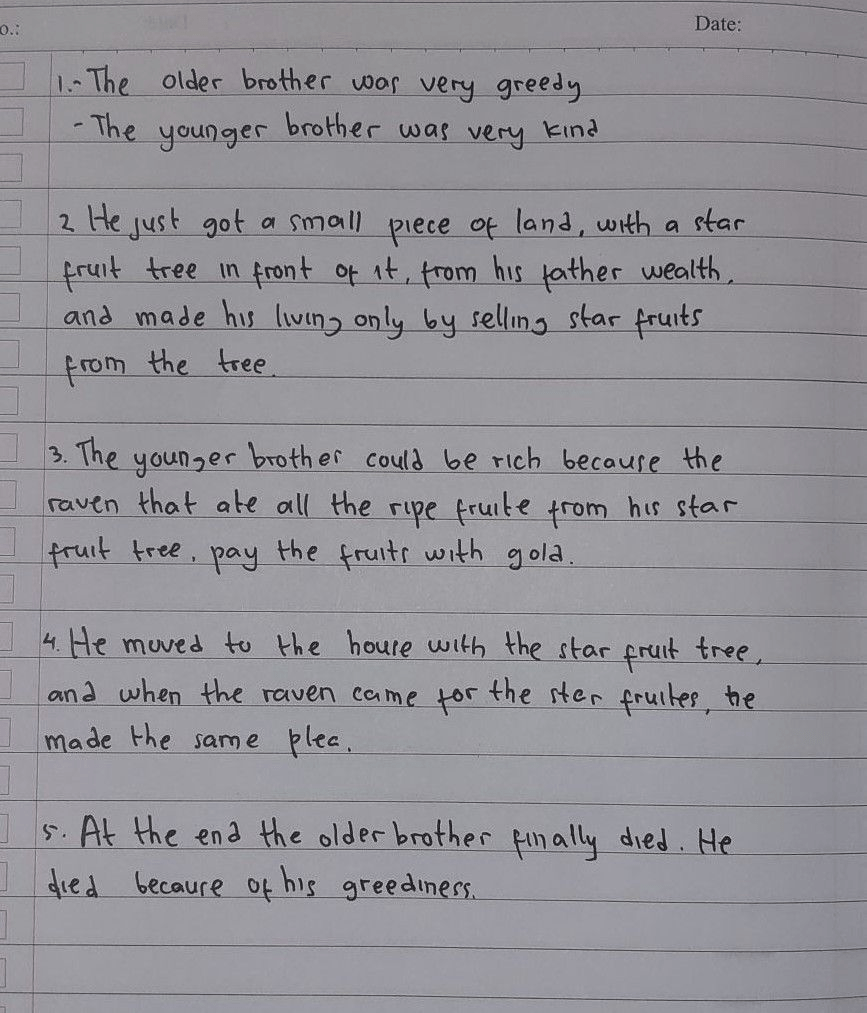 o.:
Date:
1.- The older brother was very greedy
- The younger brother was very kind
2 He just got a small piece of land, with a star
fruit tree in front of it, from his father wealth,
and made his living only by selling star fruits
from the tree.
3. The younger brother could be rich because the
raven that ate all the ripe fruite from his star
fruit tree, pay the fruits with gold.
4. He moved to the house with the star fruit tree,
and when the raven came for the star fruites, he
made the same plea.
5. At the end the older brother finally died. He
died because of his greediness.